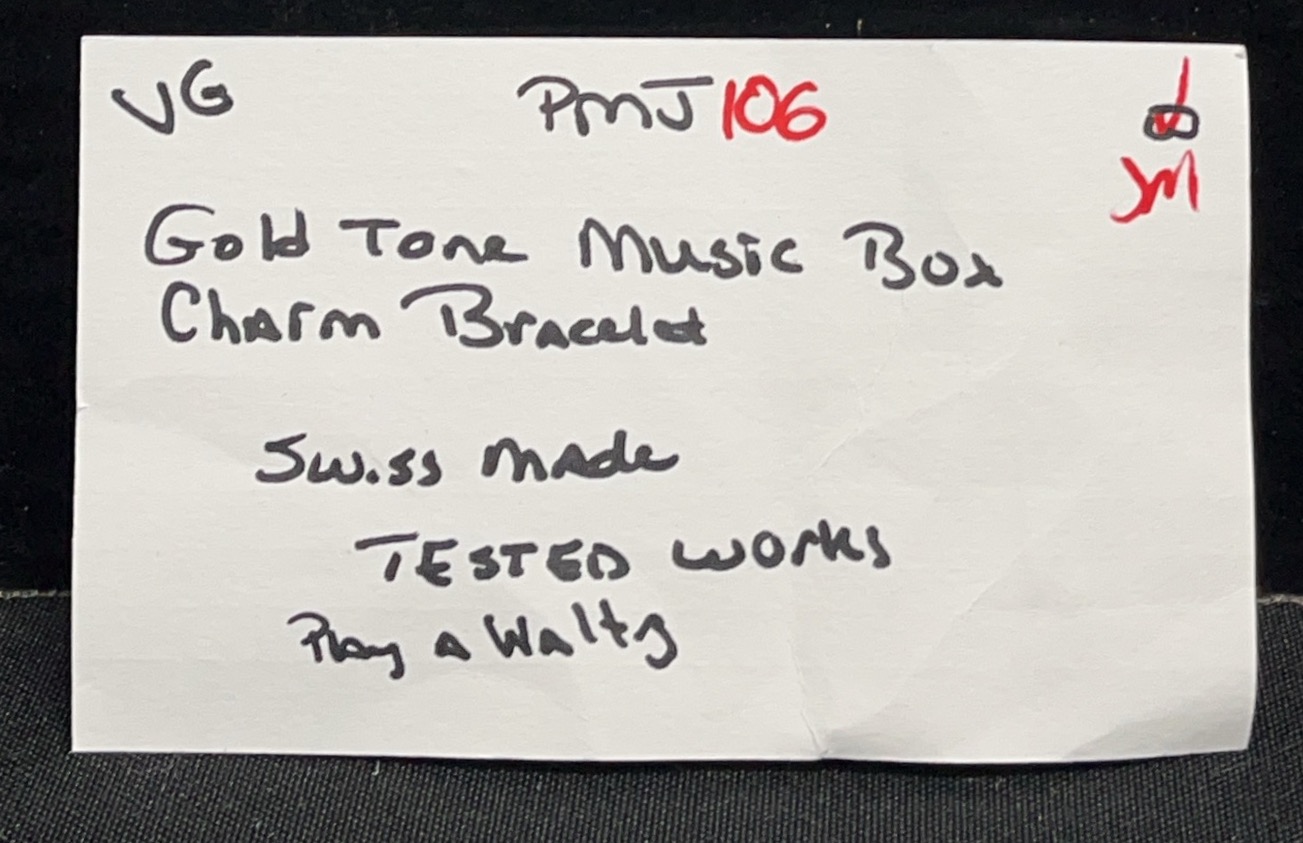 VG PMJ 106
JM
Gold Tone Music Box
Charm Bracelet
Swiss made
TESTED WORKS
Play A Waltz